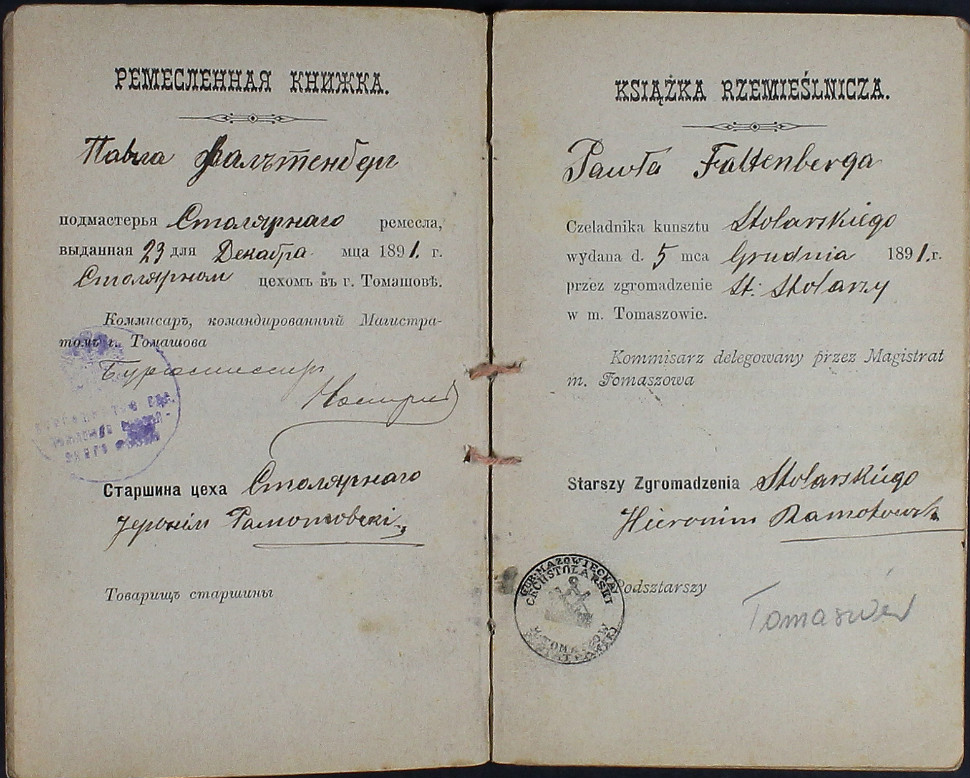 РЕМЕСЛЕННАЯ КНИЖКА.
Павла Фальтенберг
подмастерья Столярнаго ремесла,
выданная 23 для Декабра мца 1891. г.
Столярном цехомъ въ г. Томашовѣ.
Коммисаръ, командированный Магистра-
томъ г. Томашова
Старшина цеха Столярнаго
Товарищъ старшины
KSIĄŻKA RZEMIEŚLNICZA.
Pawła Faltenberga
Czeladnika kunsztu Stolarskiego
wydana d. 5 mca Grudnia 1891.r.
przez zgromadzenie St: Stolarzy
w m. Tomaszowie.
Kommisarz delegowany przez Magistrat
m. Tomaszowa
Starszy Zgromadzenia Stolarskiego
Hieronim Ramotowski
Podsztarszy
Tomaszów